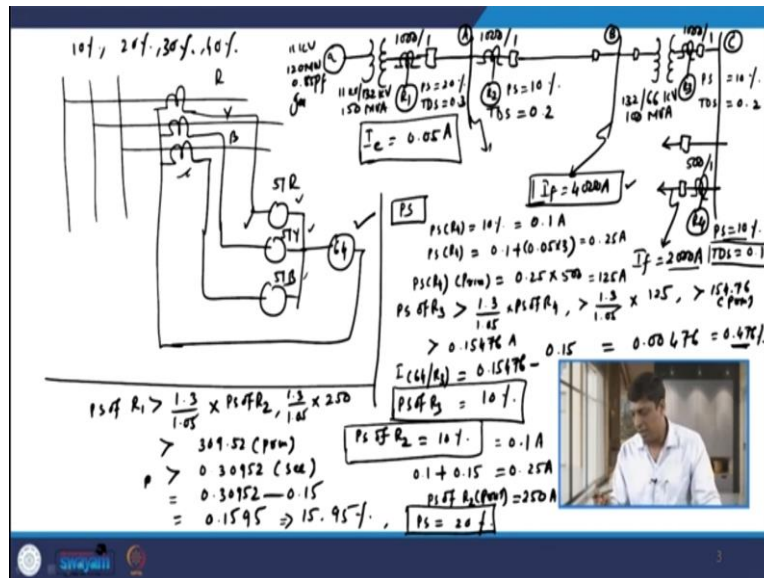 10%, 20%, 30%, 40%
R
Y
B
51R
51Y
51B
64
11 kV
120 MW
0.85 pf
G
11 kV/132 kV
150 MVA
1000/1
R1
PS=20%
TDS=0.3
A
1000/1
R2
PS=10%
TDS=0.2
B
132/66 kV
100 MVA
1000/1
R3
C
PS=10%
TDS=0.2
500/1
R4
PS=10%
TDS=0.1
Ie = 0.05A
If=4000A
If=2000A
PS
PS(R4) = 10% = 0.1A
PS(R4) = 0.1+(0.05x3) = 0.25A
PS(R4)(Prim) = 0.25 x 500 = 125A
PS of R3 > 1.3/1.05 x PS of R4, > 1.3/1.05 x 125, > 154.76 (Prim)
> 0.15476 A
I(64/R3) = 0.15476 - 0.15 = 0.00476 = 0.476%
PS of R3 = 10%
PS of R2 = 10% = 0.1A
0.1 + 0.15 = 0.25A
PS of R2(Prim) = 250A
PS of R1 > 1.3/1.05 x PS of R2, 1.3/1.05 x 250
> 309.52 (prim)
> 0.30952 (Sec)
= 0.30952 - 0.15
= 0.1595 => 15.95%, PS = 20%
swayam
3